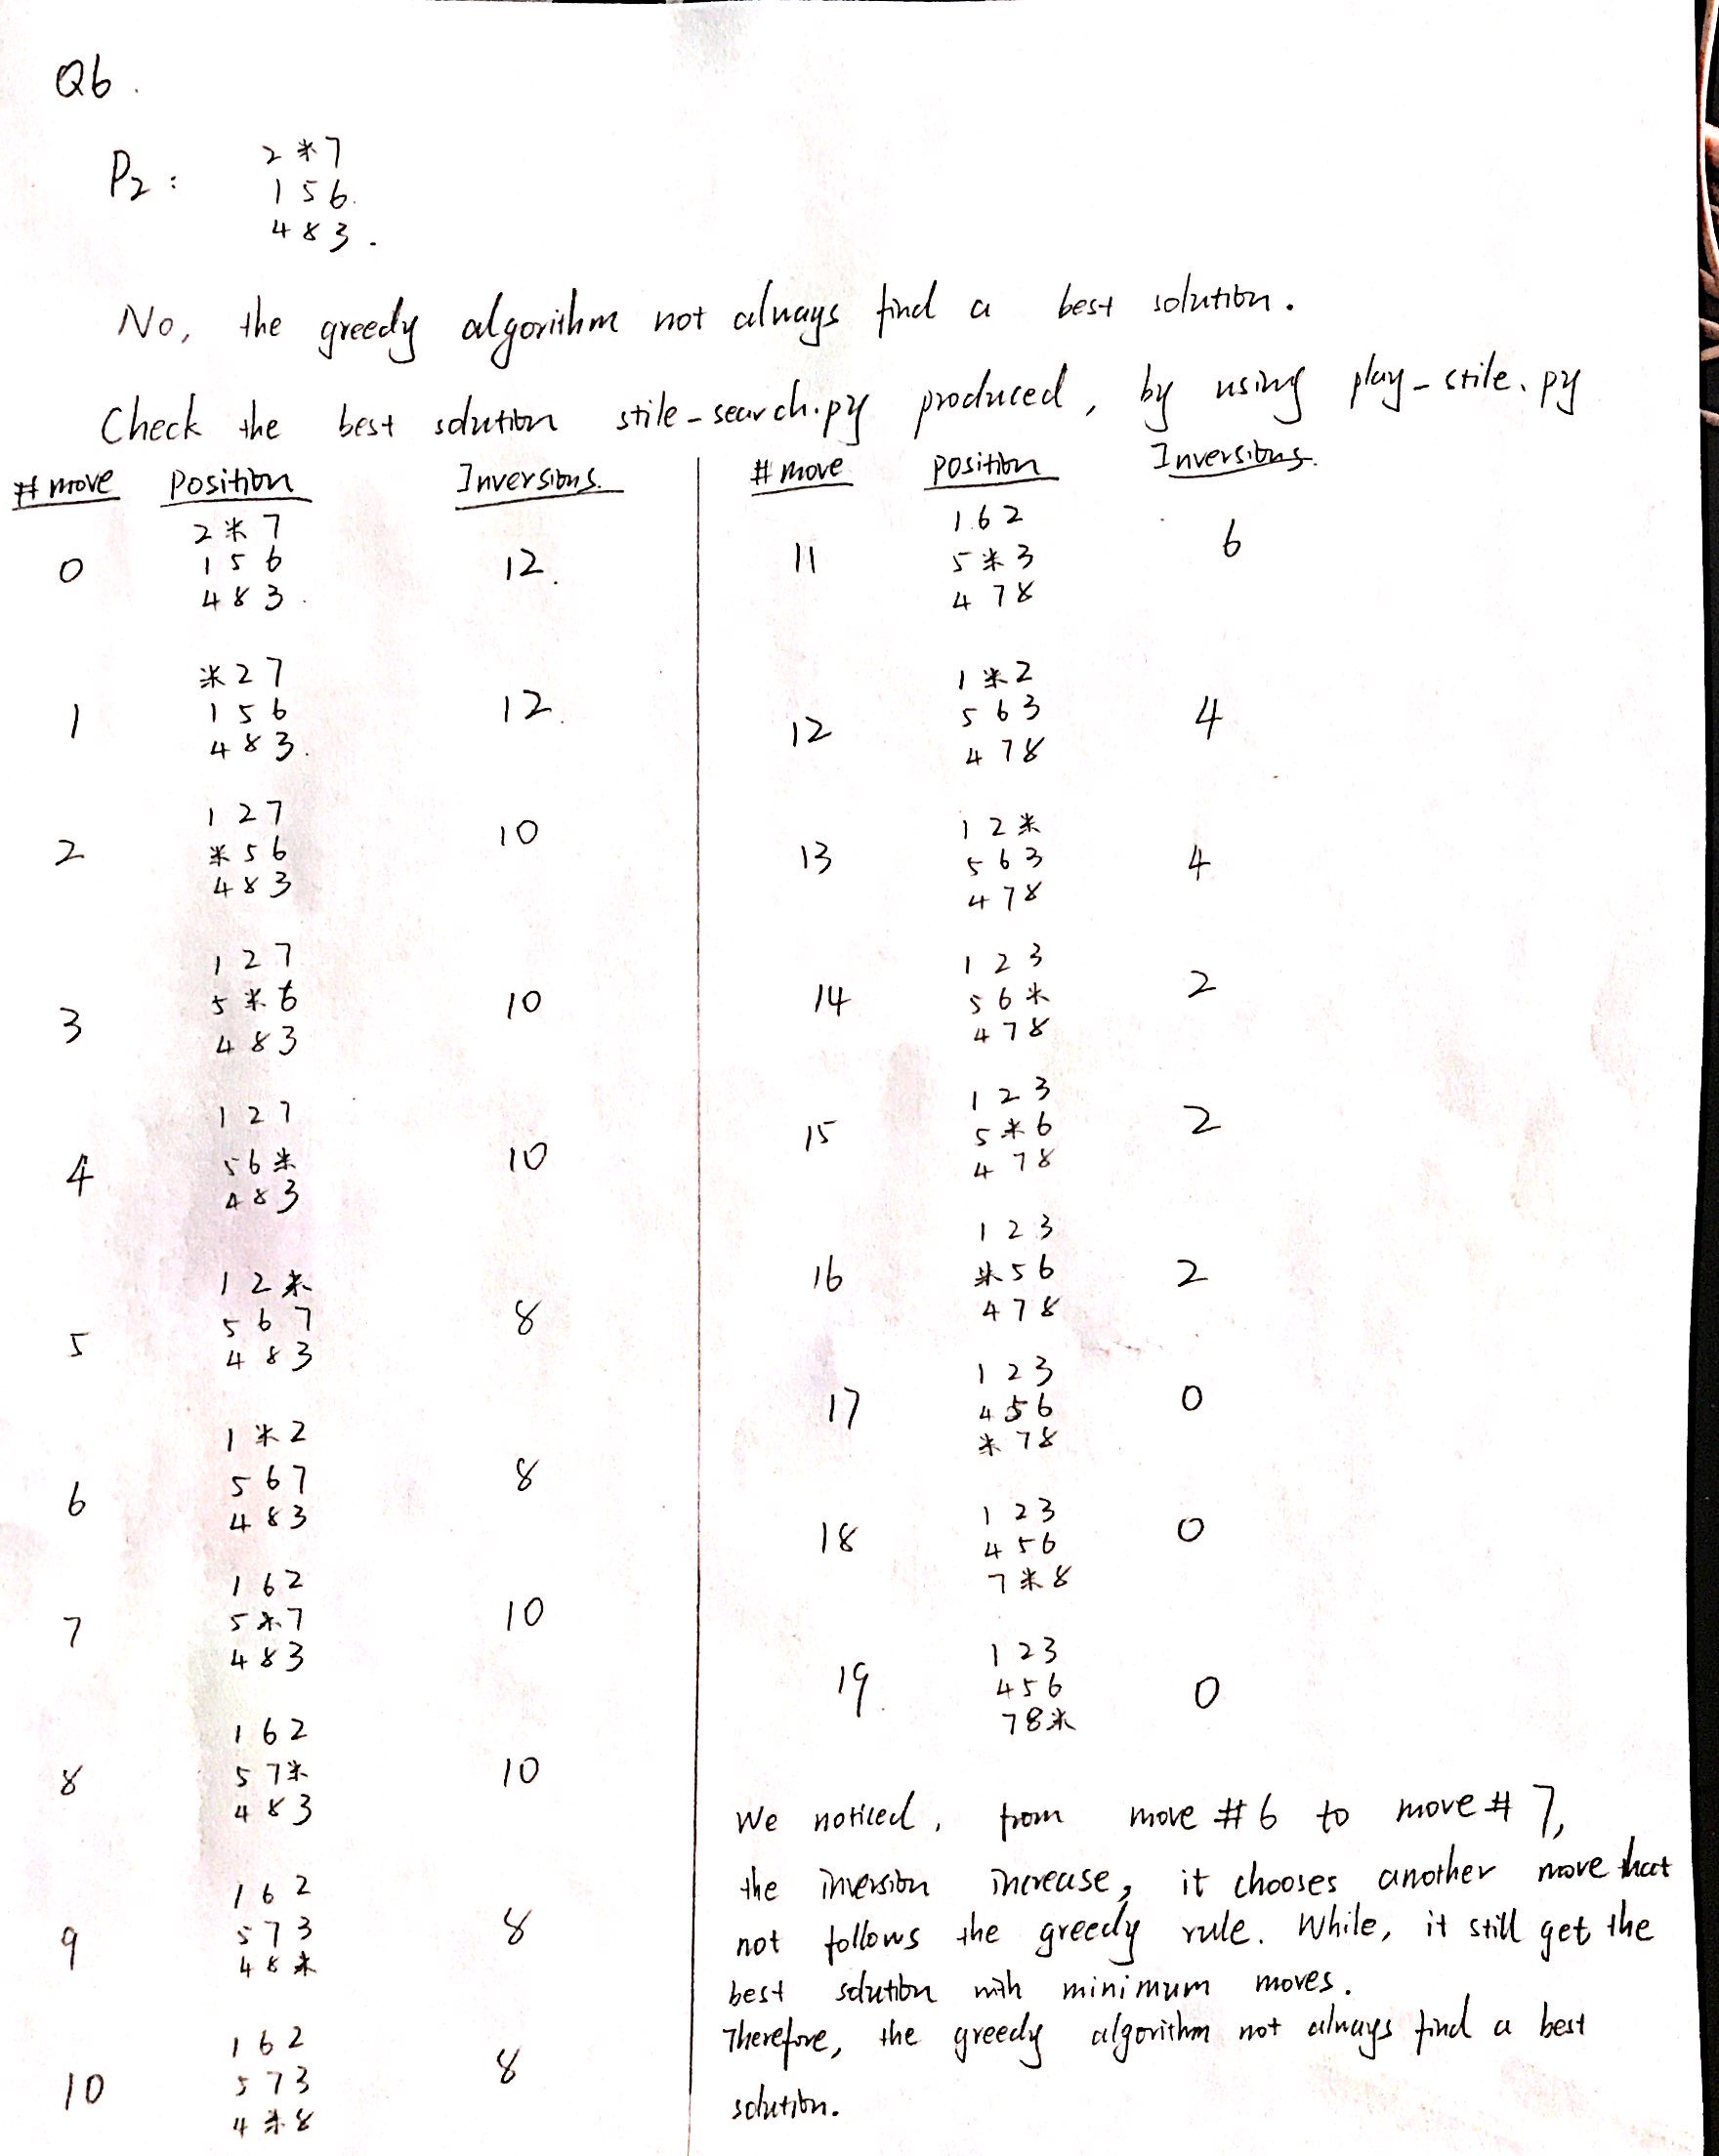 Q6.
P2: 2 * 7
1 5 6.
4 8 3.
No, the greedy algorithm not always find a best solution.
Check the best solution stile-search.py produced, by using play-stile.py
# move Position Inversions.
2 * 7
0 1 5 6 12.
4 8 3.
* 2 7
1 1 5 6 12.
4 8 3.
1 2 7
2 * 5 6 10
4 8 3
1 2 7
3 5 * 6 10
4 8 3
1 2 7
4 5 6 * 10
4 8 3
1 2 *
5 5 6 7 8
4 8 3
1 * 2
6 5 6 7 8
4 8 3
1 6 2
7 5 * 7 10
4 8 3
1 6 2
8 5 7 * 10
4 8 3
1 6 2
9 5 7 3 8
4 8 *
1 6 2
10 5 7 3 8
4 * 8
# move Position Inversions.
1 6 2
11 5 * 3 6
4 7 8
1 * 2
12 5 6 3 4
4 7 8
1 2 *
13 5 6 3 4
4 7 8
1 2 3
14 5 6 * 2
4 7 8
1 2 3
15 5 * 6 2
4 7 8
1 2 3
16 * 5 6 2
4 7 8
1 2 3
17 4 5 6 0
* 7 8
1 2 3
18 4 5 6 0
7 * 8
1 2 3
19 4 5 6 0
7 8 *
We noticed, from move # 6 to move # 7,
the inversion increase, it chooses another move that
not follows the greedy rule. While, it still get the
best solution with minimum moves.
Therefore, the greedy algorithm not always find a best
solution.